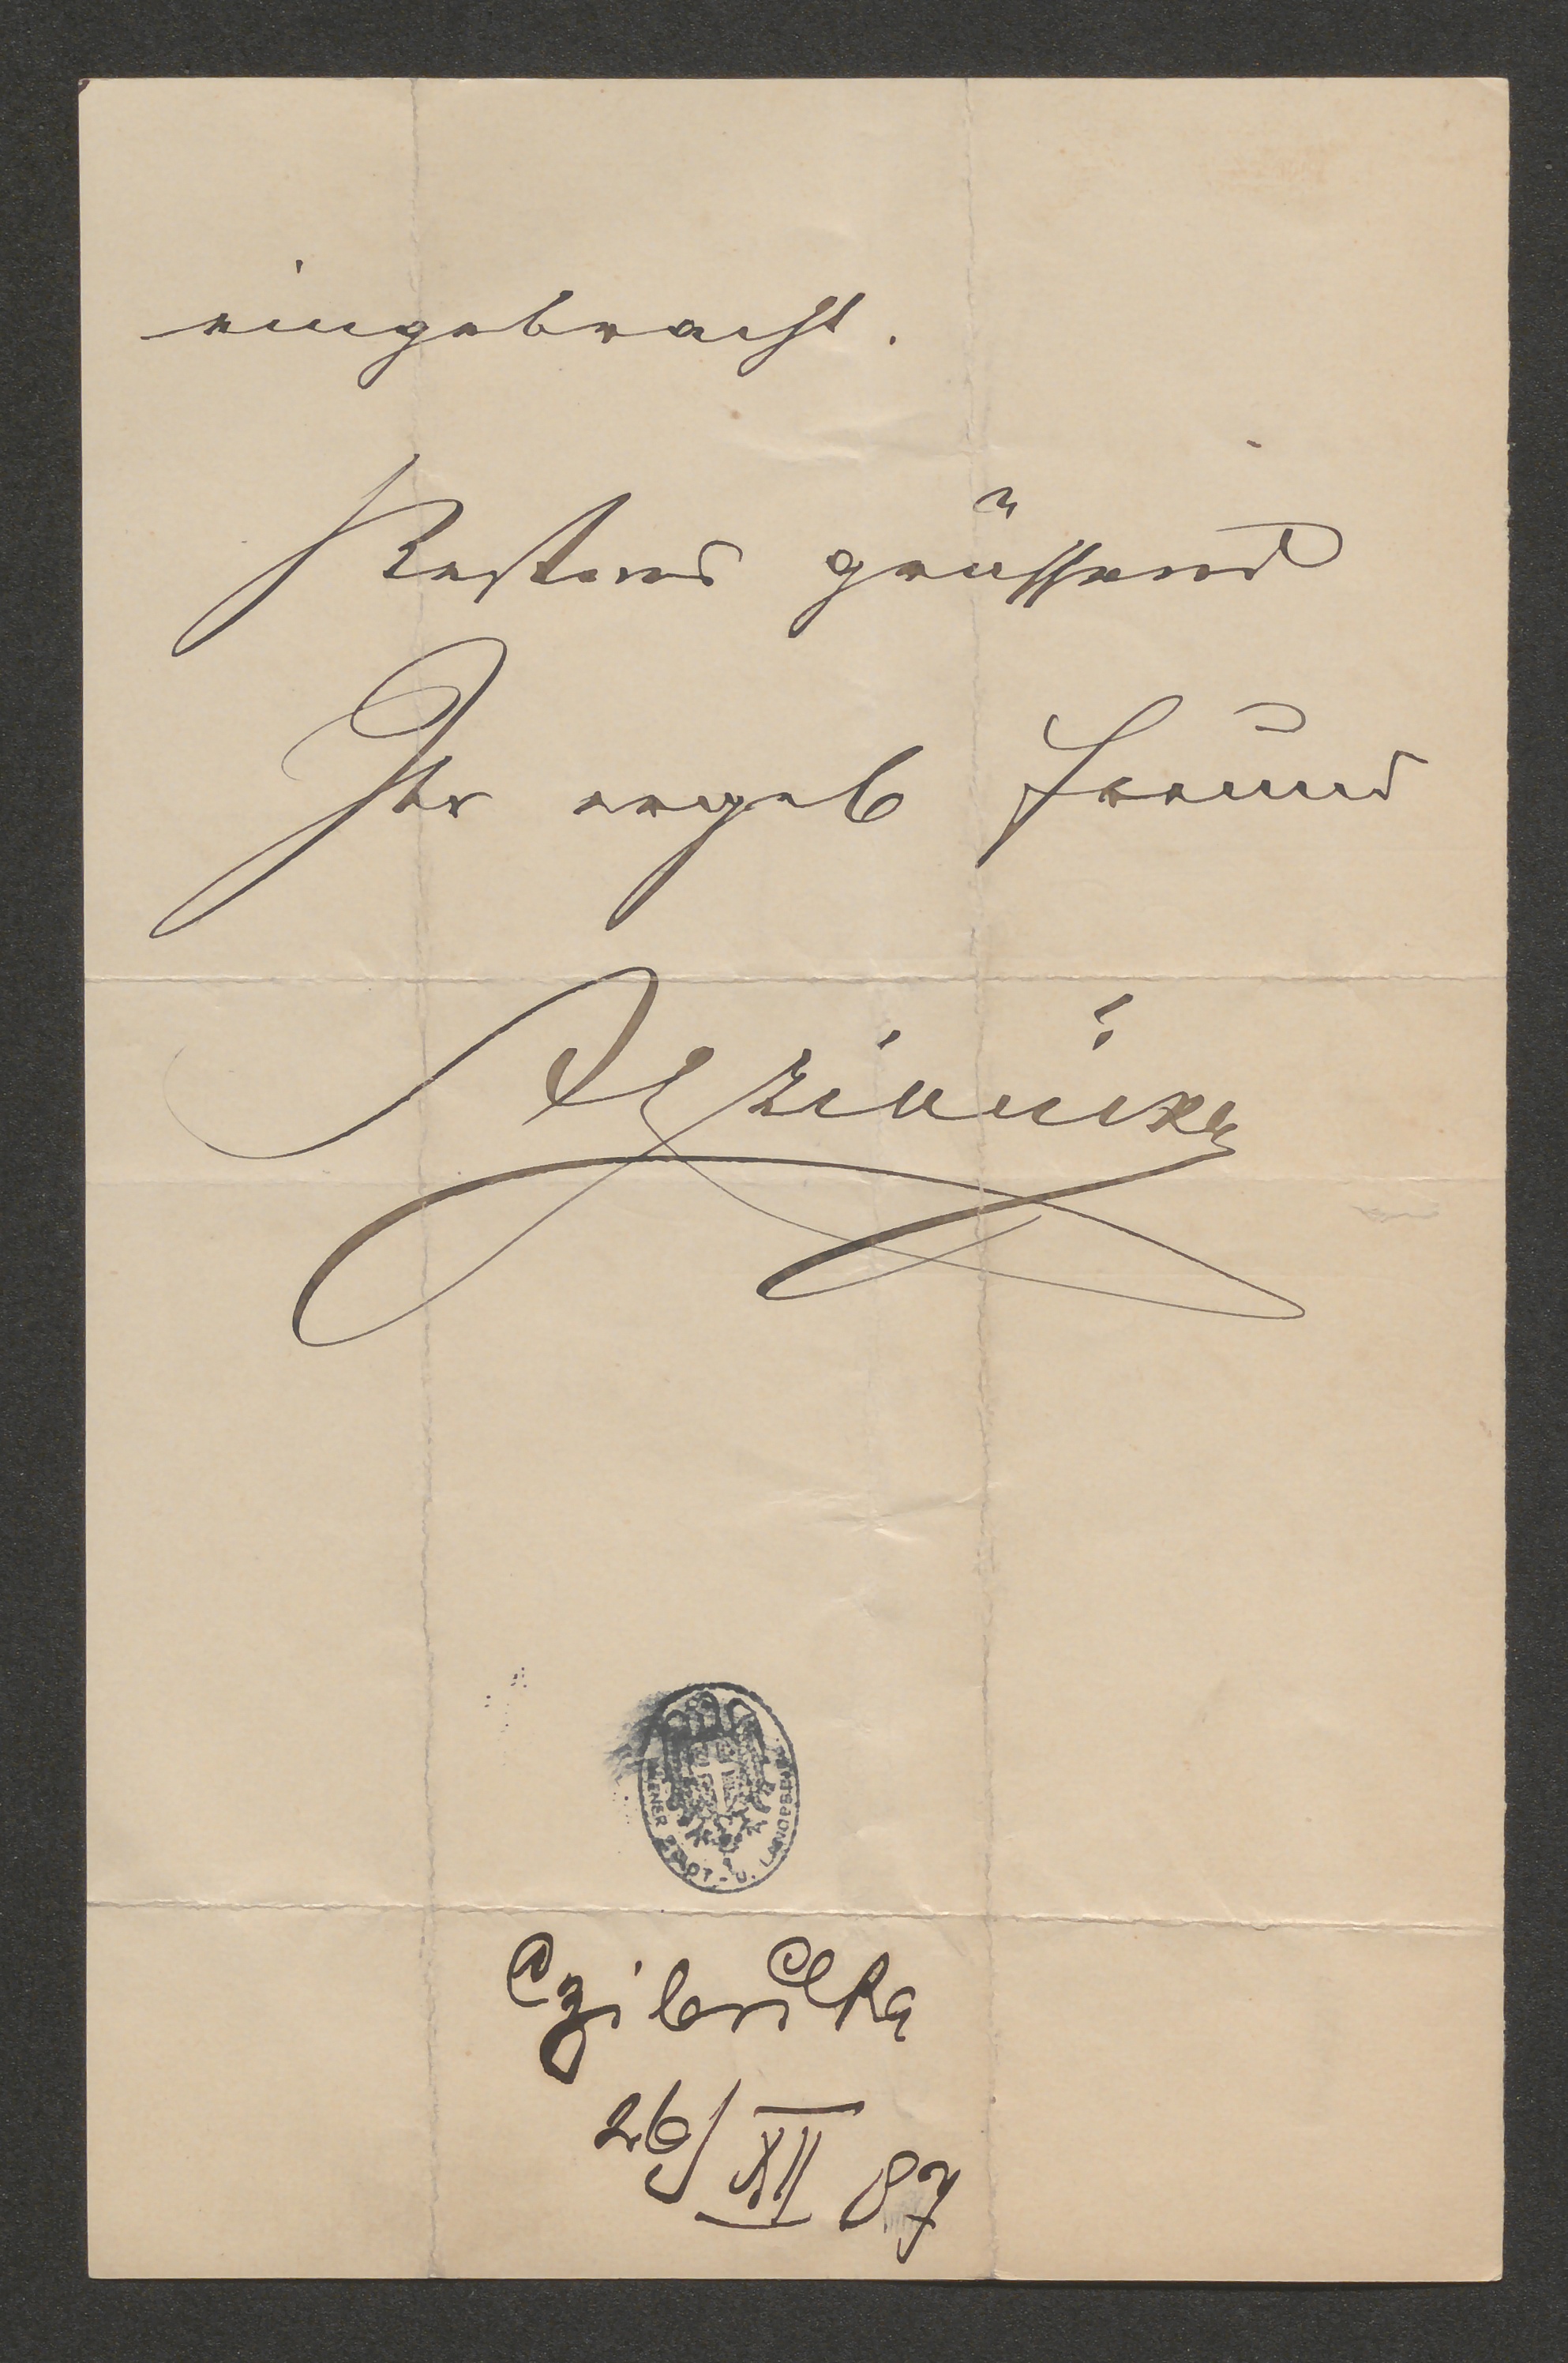 eingebracht.
Bestens grüssend
Ihr ergeb Freund
AGzibulka
WIENER STADT- U. LANDESBIBL.
Czibulka
26/XII 87